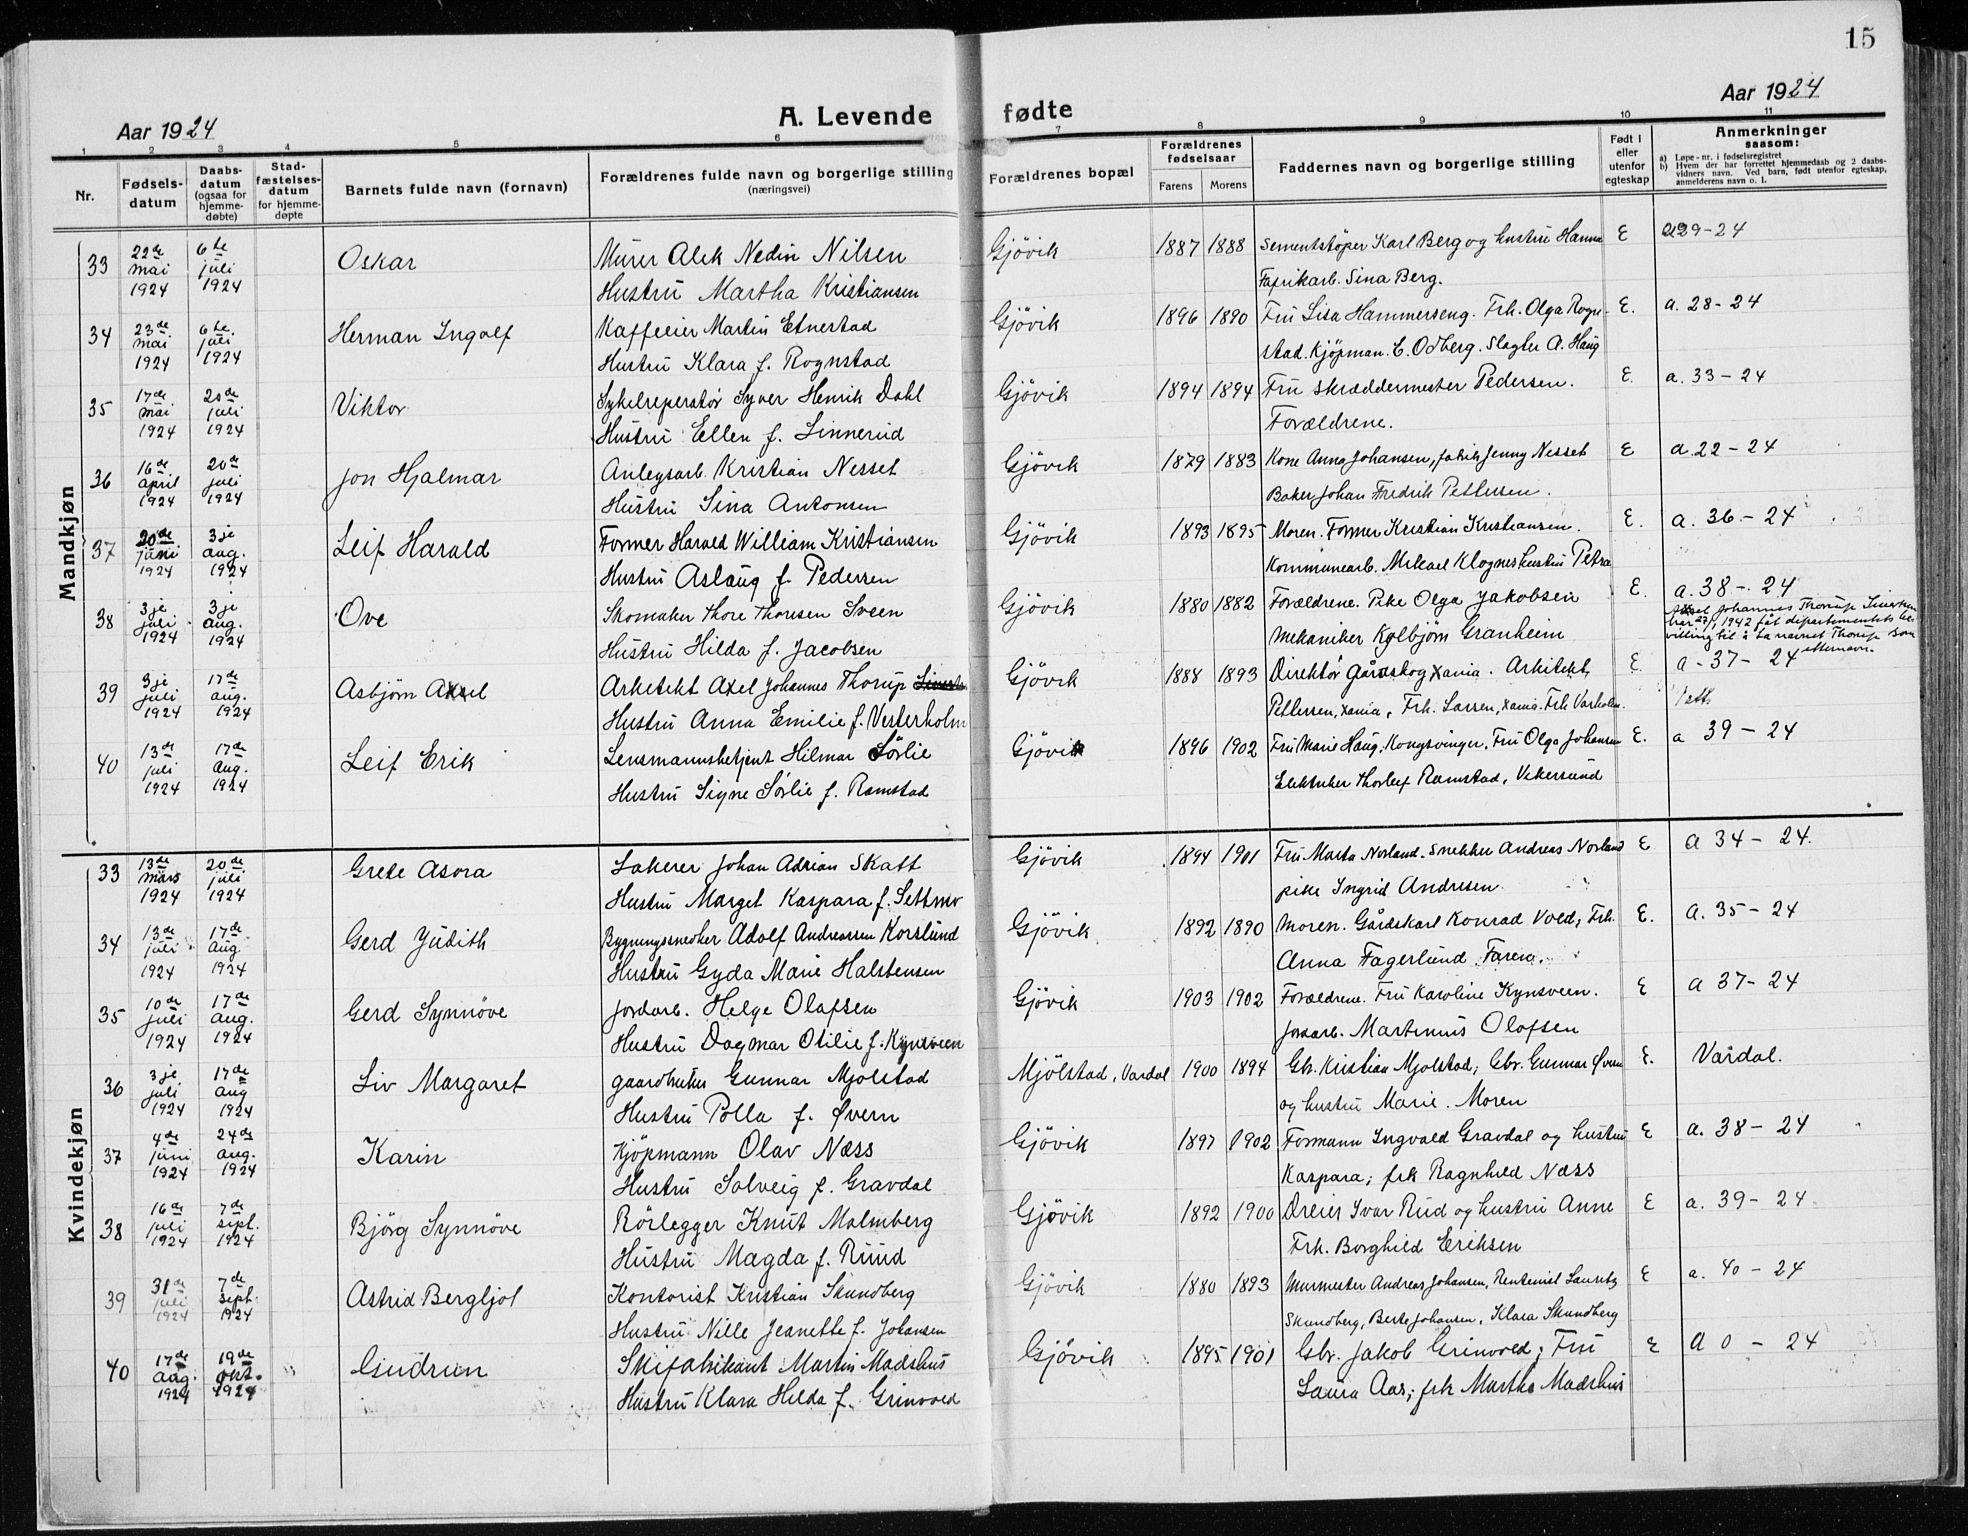 15
Aar 1924 A. Levende fødte Aar 1924
1 2 3 4 5 6 7 8 9 10 11
Nr.
Fødsels-
datum
Daabs-
datum
(ogsaa for
hjemme-
døbte)
Stad-
fæstelses-
datum
for hjemme-
døpte
Barnets fulde navn (fornavn)
Forældrenes fulde navn og borgerlige stilling
(næringsvei)
Forældrenes bopæl
Forældrenes
fødselsaar
Farens Morens
Faddernes navn og borgerlige stilling
Født i
eller
utenfor
egteskap
Anmerkninger
saasom:
a) Løpe-nr. i fødselsregistret
b) Hvem der har forrettet hjemmedaab og 2 daabs-
vidners navn. Ved barn, født utenfor egteskap,
anmelderens navn o. l.
Mandkjøn
33 22de mai 1924 6te juli 1924 Oskar Murer Alek Nedin Nilsen Gjövik 1887 1888 Sementstöper Karl Berg og hustru Hanna E a29-24
Hustru Martha Kristiansen Faprikarb. Sina Berg.
34 23de mai 1924 6te juli 1924 Herman Ingolf Kaffeeier Martin Etnestad Gjövik 1896 1890 Fru Lisa Hammerseng. Frk. Olga Rogn- E. a. 28-24
Hustru Klara f. Rognstad stad. Kjöpman. C. Odberg. Slagter A. Haug
35 17de mai 1924 20de juli 1924 Viktor Sykelreperatør Syver Henrik Dahl Gjövik 1894 1894 Fru skræddermester Pedersen. E. a. 33-24
Hustru Ellen f. Linnerud Forældrene.
36 16de april 1924 20de juli 1924 Jon Hjalmar Anlegsarb. Kristian Nesset Gjövik 1879 1883 Kone Anna Johansen, Jenny Nesset E a. 22-24
Hustru Sina Antonsen Baker Johan Fredrik Pettersen.
37 20de juni 1924 3je aug. 1924 Leif Harald Former Harald William Kristiansen Gjövik 1893 1895 Moren. Former Kristian Kristiansen. E. a. 36-24
Hustru Aslaug f. Pedersen Kommunearb. Mikael Klognes hustru Petra
38 3je juli 1924 3je aug. 1924 Ove Skomaker Thore Thoresen Sveen Gjövik 1880 1882 Forældrene. Pike Olga Jakobsen E. a. 38-24
Hustru Hilda f. Jacobsen Mekaniker Kolbjørn Granheim
Axel Johannes Thorup
har 1942 fåt departementets be-
villing til å ta navnet Thorup som
etternavn.
39 3je juli 1924 17de aug. 1924 Asbjørn Axel Arkitekt Axel Johannes Thorup Gjövik 1888 1893 Direktør Gårdskog Xania. Arkitekt E. a-37-24
Hustru Anna Emilie f. Vesterholm Pettersen, Xania, Frk. Larsen, Xania. Frk Varholm.
40 13de juli 1924 17de aug. 1924 Leif Erik Lensmannsbetjent Hilmar Sørlie Gjövik 1896 1902 Fru Marie Haug, Kongsvinger, Fru Olga Johansen E. a 39-24
Hustru Signe Sørlie f. Ramstad Elektriker Thorleif Ramstad, Vikersund
Kvindekjøn
33 13de mars 1924 20de juli 1924 Grete Asora Lakerer Johan Adrian Skatt Gjövik 1894 1901 Fru Marta Norland. Snekker Andreas Norland E a 34-24.
Hustru Marget Kaspara f. pike Ingrid Andresen
34 13de juli 1924 17de aug 1924 Gerd Judith Bygningssnedker Adolf Andreassen Korslund Gjövik 1892 1890 Moren. Gårdskarl Konrad Vold; Frk. E. a. 35-24
Hustru Gyda Marie Halstensen Anna Fagerlund. Faren.
35 10de juli 1924 17de aug. 1924 Gerd Synnöve Jordarb. Helge Olafsen Gjövik 1903 1902 Forældrene. Fru Karoline Kynsveen. E a 37-24
Hustru Dagmar Otilie f. Kynsveen Jordarb. Martinius Olafsen
36 3je juli 1924 17de aug 1924 Liv Margaret gaardbruker Gunnar Mjølstad Mjölstad, Vardal 1900 1894 Gbr. Kristian Mjølstad; Gbr. Gunnar Øvern E. Vardal.
Hustru Polla f. Øvern og hustru Marie. Moren
37 4de juni 1924 24de aug. 1924 Karin Kjöpmann Olav Næss Gjövik 1897 1902 Formann Ingvald Gravdal og hustru E a. 38-24
Hustru Solveig f. Gravdal Kaspara; frk Ragnhild Næss
38 16de juli 1924 7de sept. 1924 Bjørg Synnöve Rörlegger Knut Malmberg Gjövik 1892 1900 Dreier Ivar Rud og hustru Anne E a. 39-24
Hustru Magda f. Ruud Frk. Borghild Eriksen
39 31de juli 1924 7de sept. 1924 Astrid Bergljot Kontorist Kristian Skundberg Gjövik 1880 1893 Murmester Andreas Johansen, Rentenist Lauritz E a. 40-24
Hustru Nille Jeanette f. Johansen Skundberg, Berte Johansen, Klara Skundberg
40 17de aug. 1924 19de okt. 1924 Gudrun Skifabrikant Martin Madshus Gjövik 1895 1901 Gbr. Jakob Grinvold; Fru E a 0-24
Hustru Klara Hilda f. Grinvold Laura Aas; frk Martha Madshus